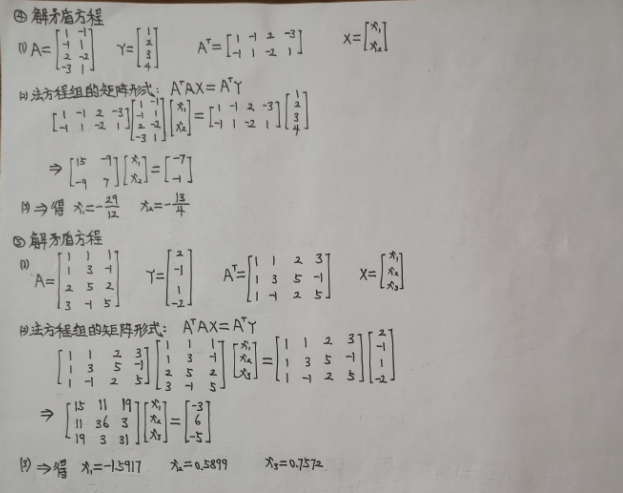 ④ 解矛盾方程
(1) A=[1 -1; -1 1; 2 -2; -3 1] Y=[1; 2; 3; 4] Aᵀ=[1 -1 2 -3; -1 1 -2 1] X=[x₁; x₂]
(2) 法方程组的矩阵形式: AᵀAX=AᵀY
[1 -1 2 -3; -1 1 -2 1][1 -1; -1 1; 2 -2; -3 1][x₁; x₂]=[1 -1 2 -3; -1 1 -2 1][1; 2; 3; 4]
⇒ [15 -9; -9 7][x₁; x₂]=[-7; -1]
(3) ⇒ 得 x₁=-29/12 x₂=-13/4
⑤ 解矛盾方程
(1) A=[1 1 1; 1 3 -1; 2 5 2; 3 -1 5] Y=[2; -1; 1; -2] Aᵀ=[1 1 2 3; 1 3 5 -1; 1 -1 2 5] X=[x₁; x₂; x₃]
(2) 法方程组的矩阵形式: AᵀAX=AᵀY
[1 1 2 3; 1 3 5 -1; 1 -1 2 5][1 1 1; 1 3 -1; 2 5 2; 3 -1 5][x₁; x₂; x₃]=[1 1 2 3; 1 3 5 -1; 1 -1 2 5][2; -1; 1; -2]
⇒ [15 11 19; 11 36 3; 19 3 31][x₁; x₂; x₃]=[-3; 6; -5]
(3) ⇒ 得 x₁=-1.5917 x₂=0.5899 x₃=0.7572